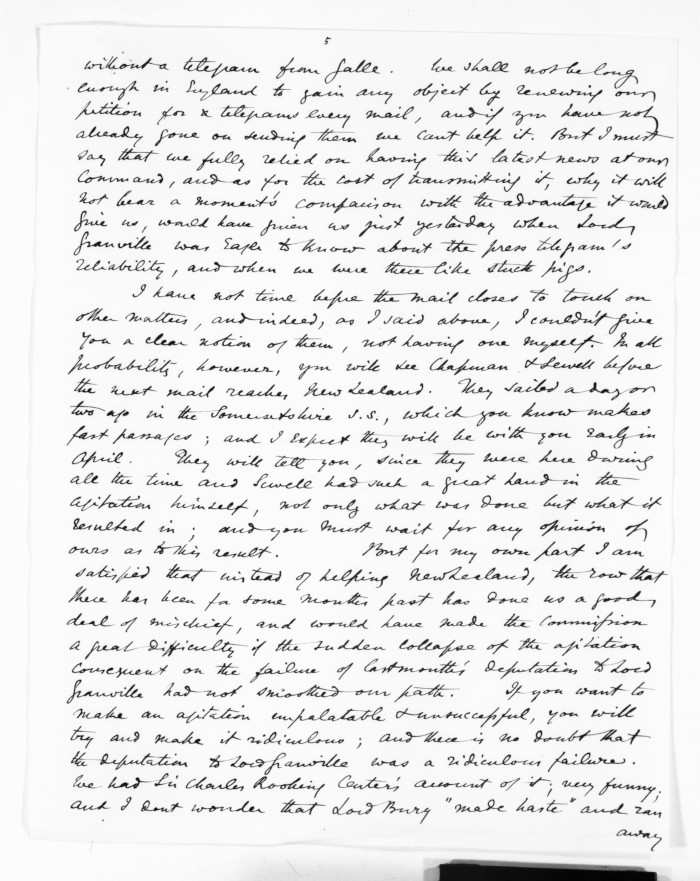 5
without a telegram from Galle. We shall not be long
enough in England to gain any object by renewing our
petition for & telegrams every mail, and if you have not
already gone on sending them we cant help it. But I must
say that we fully relied on having this latest news at our
command, and as for the cost of transmitting it, why it will
not bear a moment's comparison with the advantage it would
give us, would have given us just yesterday when Lord
Granville was eager to know about the press telegram's
reliability, and when we were there like stuck pigs.
I have not time before the mail closes to touch on
other matters, and indeed, as I said above, I couldn't give
you a clear notion of them, not having one myself. In all
probability, however, you will see Chapman & Sewell before
the next mail reaches New Zealand. They sailed a day or
two ago in the Somersetshire S.S., which you know makes
fast passages; and I expect they will be with you early in
April. They will tell you, since they were here during
all the time and Sewell had such a great hand in the
agitation himself, not only what was done but what it
resulted in; and you must wait for any opinion of
ours as to this result. But for my own part I am
satisfied that instead of helping New Zealand, the row that
there has been for some months past has done us a good
deal of mischief, and would have made the Commission
a great difficulty if the sudden collapse of the agitation
consequent on the failure of last month's deputation to Lord
Granville had not smoothed our path. If you want to
make an agitation unpalatable & unsuccessful, you will
try and make it ridiculous; and there is no doubt that
the deputation to Lord Granville was a ridiculous failure.
We had Sir Charles Rooking Carter's account of it; very funny;
and I dont wonder that Lord Bury "made haste" and ran
away